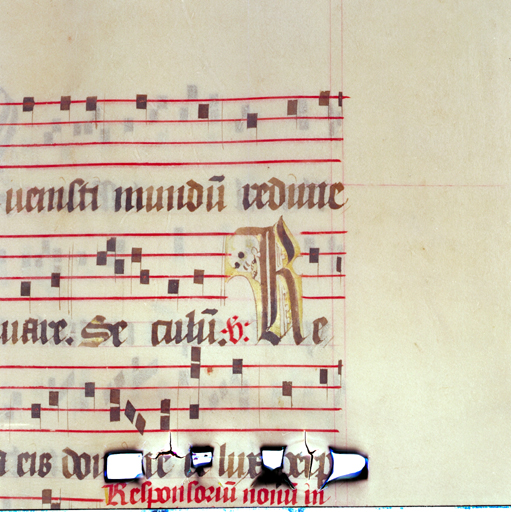 uenisti mundū redime
uare. Se culū. v̄: Re
eis do lux
Responsoriū nonū in